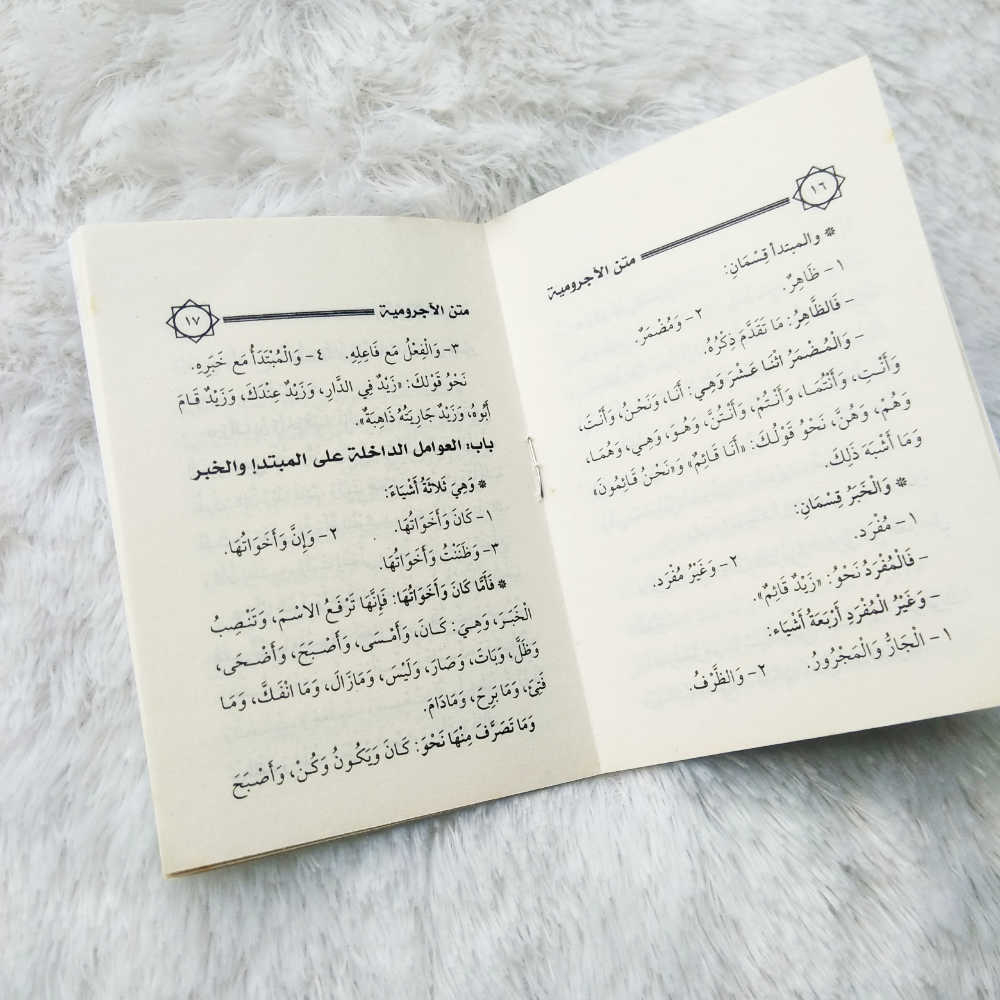 ١٦
متن الآجرومية
* والمبتدأ قِسْمَانِ:
١- ظَاهِرٌ.
٢- وَمُضْمَرٌ.
- فَالظَّاهِرُ: مَا تَقَدَّمَ ذِكْرُهُ.
- وَالْمُضْمَرُ اثْنَا عَشَرَ وَهِيَ: أَنَا، وَنَحْنُ، وَأَنْتَ،
وَأَنْتِ، وَأَنْتُمَا، وَأَنْتُمْ، وَأَنْتُنَّ، وَهُوَ، وَهِيَ، وَهُمَا،
وَهُمْ، وَهُنَّ، نَحْوُ قَوْلُكَ: «أَنَا قَائِمٌ» وَ«نَحْنُ قَائِمُونَ»
وَمَا أَشْبَهَ ذَلِكَ.
* وَالْخَبَرُ قِسْمَانِ:
١- مُفْرَد.
٢- وَغَيْرُ مُفْرَد.
- فَالْمُفْرَدُ نَحْوُ: «زَيْدٌ قَائِمٌ».
- وَغَيْرُ الْمُفْرَدِ أَرْبَعَةُ أَشْيَاء:
١- الْجَارُّ وَالْمَجْرُورُ. ٢- وَالظَّرْفُ.
متن الآجرومية
١٧
٣- وَالْفِعْلُ مَع فَاعِلِهِ. ٤- وَالْمُبْتَدَأُ مَع خَبَرِهِ.
نَحْوُ قَوْلِكَ: «زَيْدٌ فِي الدَّارِ، وَزَيْدٌ عِنْدَكَ، وَزَيْدٌ قَامَ
أَبُوهُ، وَزَيْدٌ جَارِيَتُهُ ذَاهِبَةٌ».
باب: العوامل الداخلة على المبتدإ والخبر
* وَهِيَ ثَلاثَةُ أَشْيَاءَ:
١- كَانَ وَأَخَوَاتُهَا. ٢- وَإِنَّ وَأَخَوَاتُهَا.
٣- وَظَنَنْتُ وَأَخَوَاتُهَا.
* فَأَمَّا كَانَ وَأَخَوَاتُهَا: فَإِنَّهَا تَرْفَعُ الاسْمَ، وَتَنْصِبُ
الْخَبَرَ، وَهِيَ: كَانَ، وَأَمْسَى، وَأَصْبَحَ، وَأَضْحَى،
وَظَلَّ، وَبَاتَ، وَصَارَ، وَلَيْسَ، وَمَازَالَ، وَمَا انْفَكَّ، وَمَا
فَتِئَ، وَمَا بَرِحَ، وَمَادَامَ.
وَمَا تَصَرَّفَ مِنْهَا نَحْوَ: كَانَ وَيَكُونُ وَكُنْ، وَأَصْبَحَ